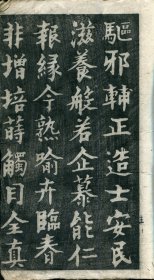 驅邪輔正造士安民
滋養般若企慕能仁
報緣今熟喻卉臨春
非增培蒔觸目全真